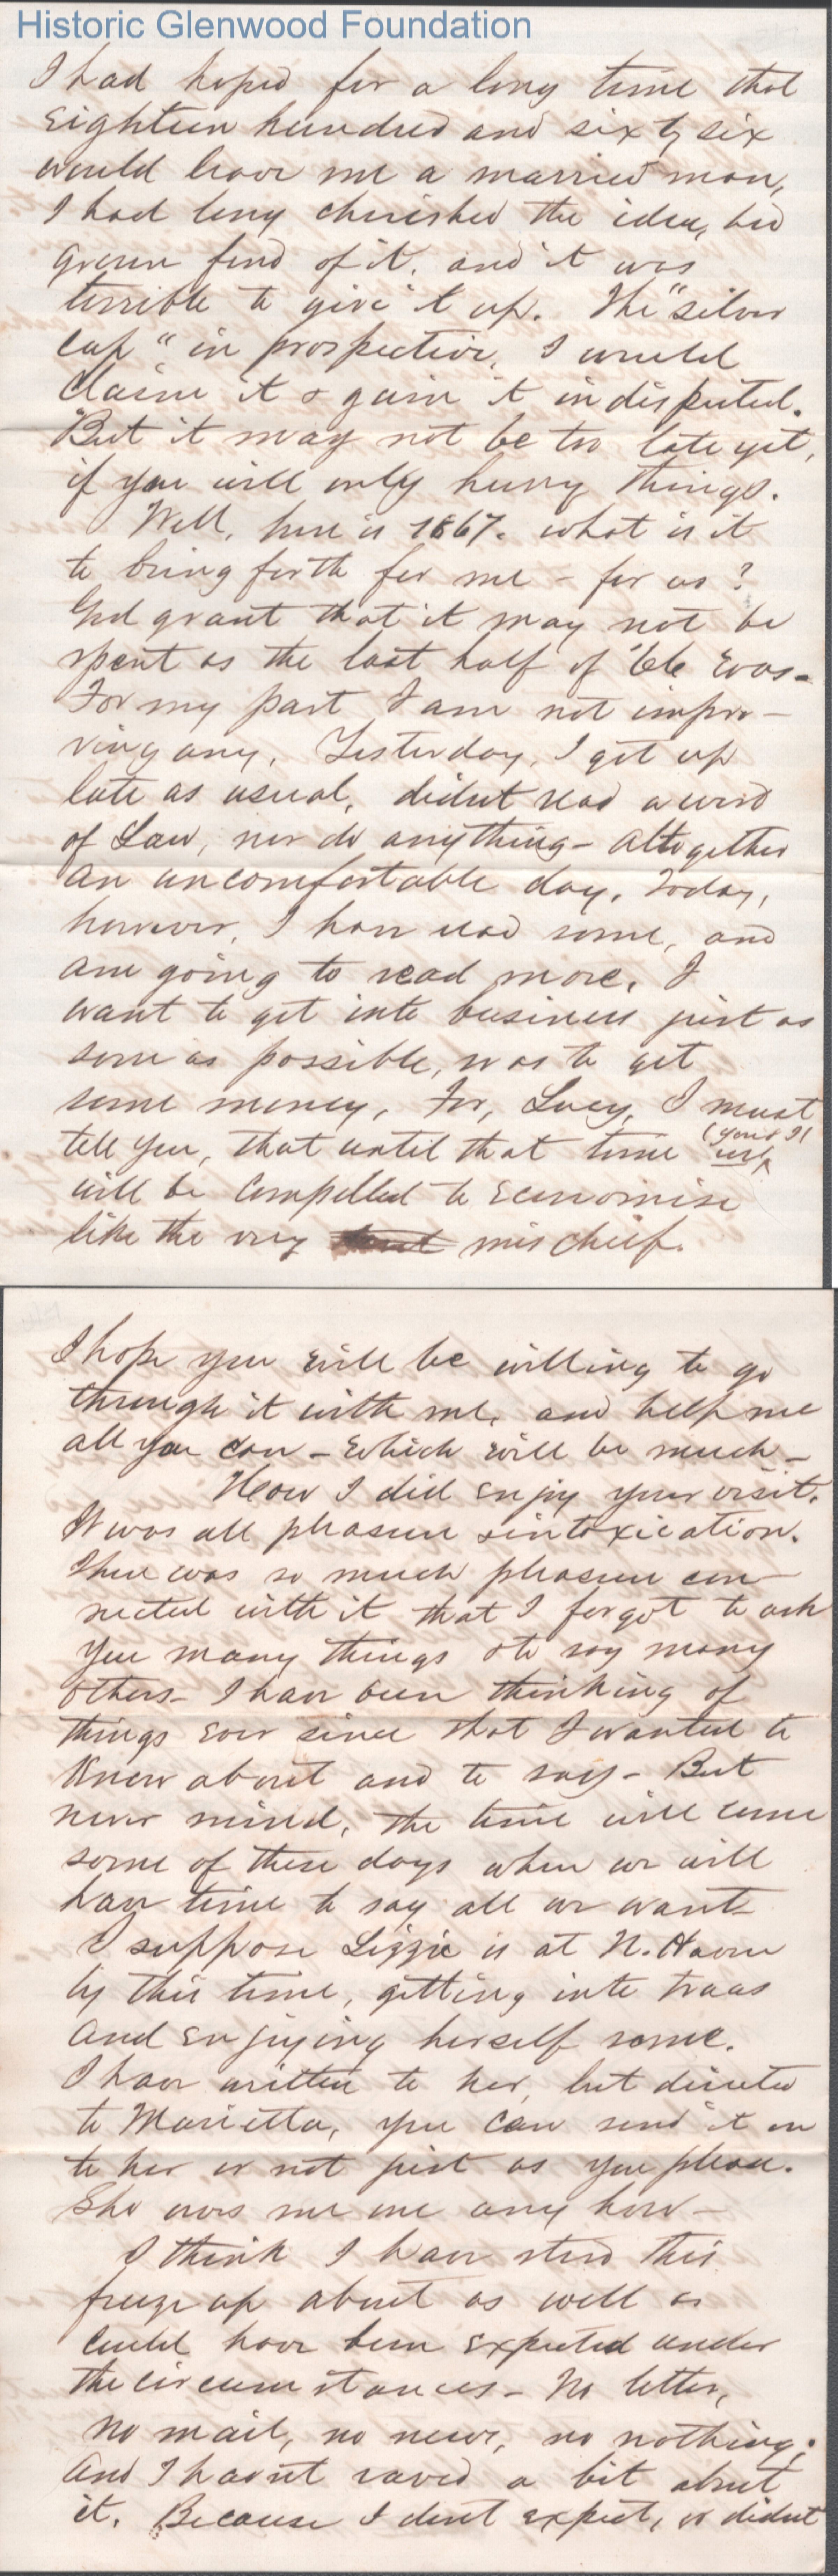 Historic Glenwood Foundation
I had hoped for a long time that
Eighteen hundred and sixty six
would leave me a married man,
I had long cherished the idea, had
grown fond of it, and it was
terrible to give it up. The "silver
cup" in prospective, I would
claim it & gain it undisputed.
But it may not be too late yet,
if you will only hurry things.
Well, here is 1867. what is it
to bring forth for me - for us?
God grant that it may not be
spent as the last half of '66 was-
For my part I am not impro-
ving any, Yesterday, I got up
late as usual, didnt read a word
of Law, nor do anything- altogether
an uncomfortable day. Today,
however, I have read some, and
am going to read more. I
want to get into business just as
soon as possible, so as to get
some money, For, Lucy, I must
tell you, that until that time we (you & I)
will be compelled to economise
like the very mischief.
I hope you will be willing to go
through it with me, and help me
all you can - which will be much -
How I did enjoy your visit.
It was all pleasure & intoxication.
There was so much pleasure con
nected with it that I forgot to ask
you many things & to say many
others- I have been thinking of
things ever since that I wanted to
know about and to say - But
never mind, the time will come
some of these days when we will
have time to say all we want
I suppose Lizzie is at N. Haven
by this time, getting into
and enjoying herself some.
I have written to her, but directed
to Marietta, you can send it on
to her or not just as you please.
She owes me one any how -
I think I have stood this
freeze up about as well as
could have been expected under
the circumstances - No letter,
no mail, no news, no nothing;
And I havnt raved a bit about
it. Because I dont expect, or didnt